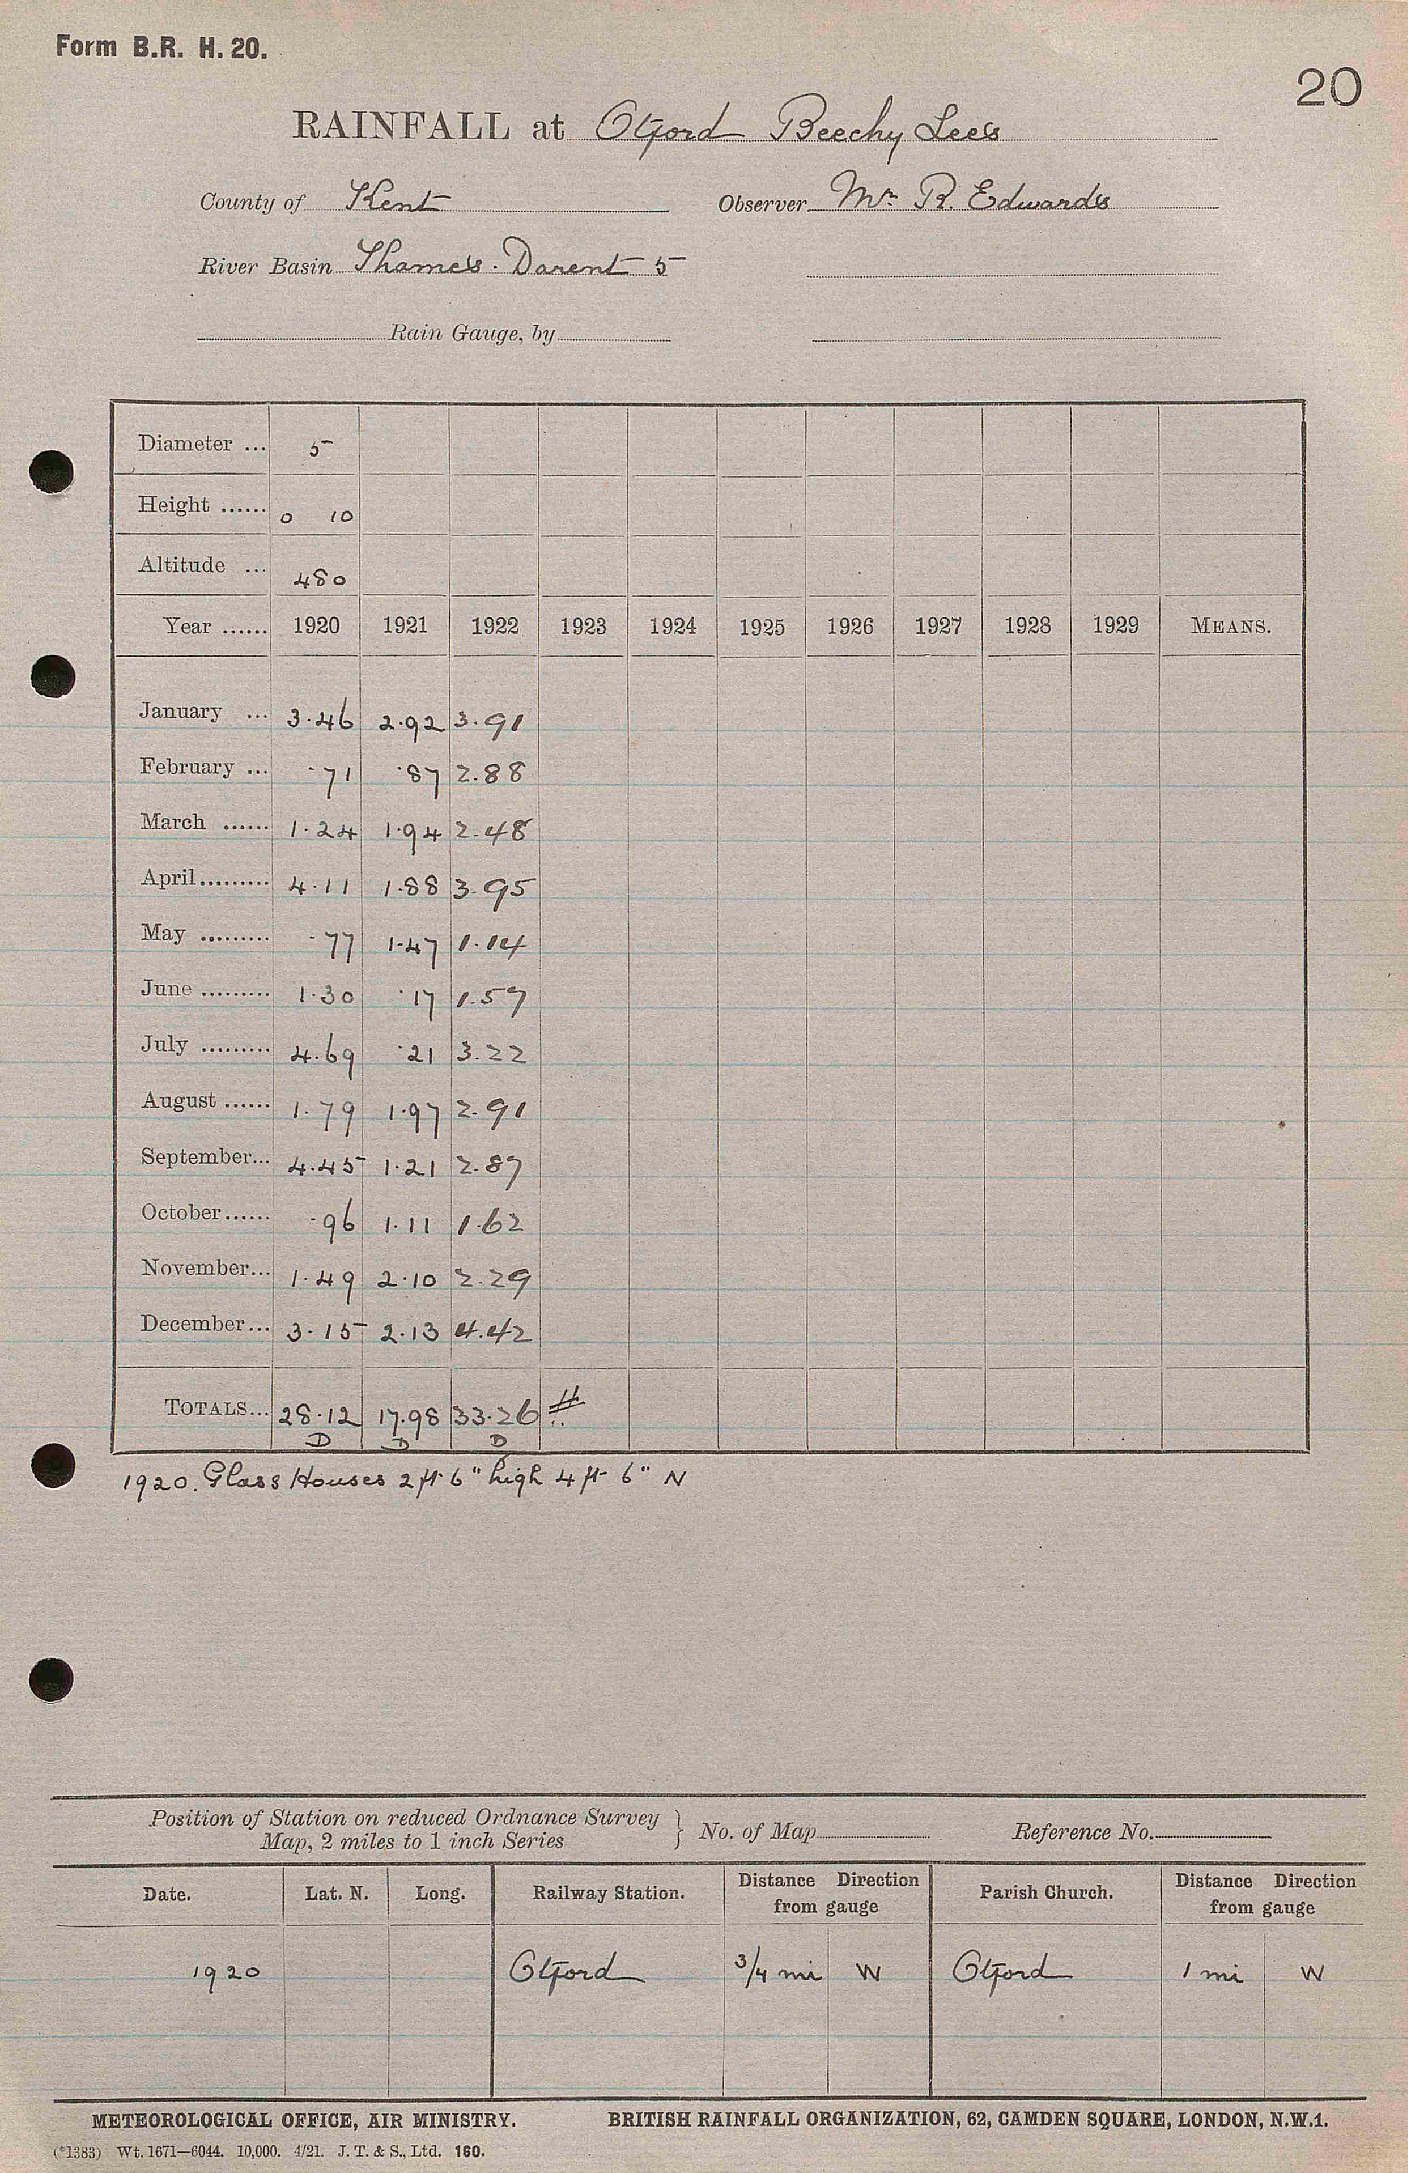 Form B.R. H. 20.
20
RAINFALL at Otford Beechy Lees
County of Kent Observer Mr. R. Edwards
River Basin Thames. Darent 5
Rain Gauge, by
Diameter ... 5
Height ...... 0 10
Altitude ... 480
Year ...... 1920 1921 1922 1923 1924 1925 1926 1927 1928 1929 MEANS.
January ... 3.46 2.92 3.91
February ... .71 .87 2.88
March ...... 1.24 1.94 2.48
April ......... 4.11 1.88 3.95
May ......... .77 1.47 1.14
June ......... 1.30 .17 1.57
July ......... 4.69 .21 3.22
August ...... 1.79 1.97 2.91
September... 4.45 1.21 2.87
October ...... .96 1.11 1.62
November... 1.49 2.10 2.29
December... 3.15 2.13 4.42
TOTALS... 28.12 17.98 33.26 #
D D D
1920. Glass Houses 2 ft 6" high 4 ft 6" N
Position of Station on reduced Ordnance Survey Map, 2 miles to 1 inch Series } No. of Map Reference No.
Date. Lat. N. Long. Railway Station. Distance Direction from gauge Parish Church. Distance Direction from gauge
1920 Otford 3/4 mi W Otford 1 mi W
METEOROLOGICAL OFFICE, AIR MINISTRY. BRITISH RAINFALL ORGANIZATION, 62, CAMDEN SQUARE, LONDON, N.W.1.
(*1383) Wt. 1671—6044. 10,000. 4/21. J. T. & S., Ltd. 160.